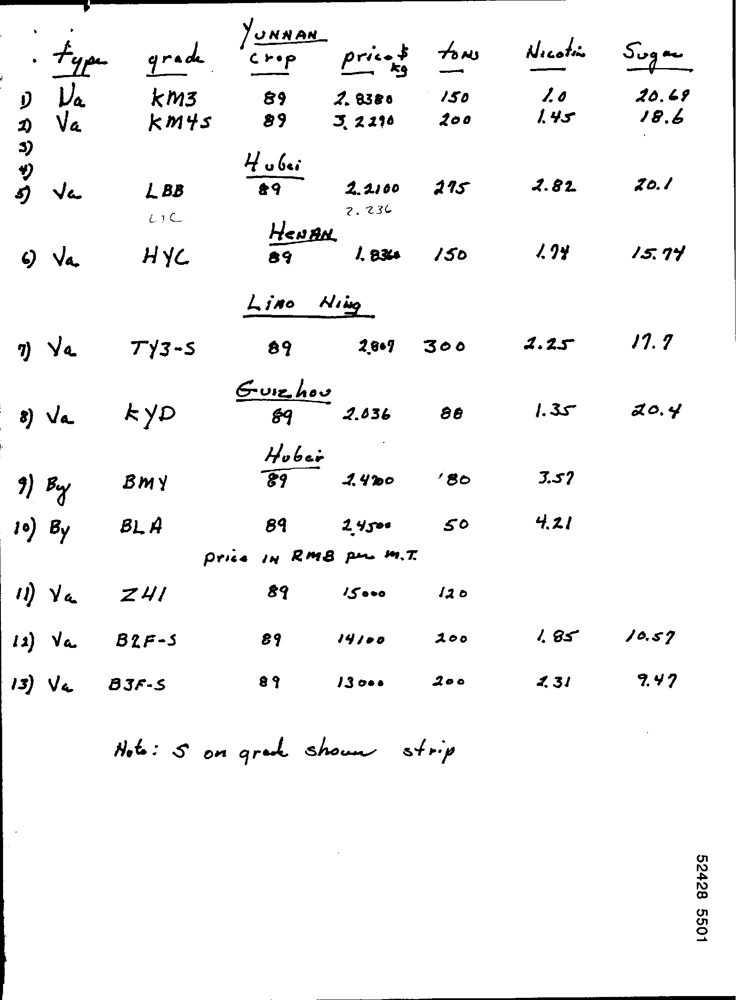 YUNNAN
type grade crop price $ kg tons Nicotin Sugar
1) Va KM3 89 2.8380 150 1.0 20.69
2) Va KM4S 89 3.2290 200 1.45 18.6
3)
4)
Hubei
5) Va LBB 89 2.2100 275 2.82 20.1
L1C 2.236
HENAN
6) Va HYC 89 1.8360 150 1.74 15.74
Liao Ning
7) Va TY3-S 89 2.807 300 2.25 17.7
Guizhou
8) Va KYD 89 2.036 88 1.35 20.4
Hubei
9) By BMY 89 80 3.57
10) By BLA 89 2.4500 50 4.21
price IN RMB per M.T.
11) Va Z41 89 15000 120
12) Va B2F-S 89 14100 200 1.85 10.57
13) Va B3F-S 89 13000 200 2.31 9.47
Note: S on grade shown strip
52428 5501